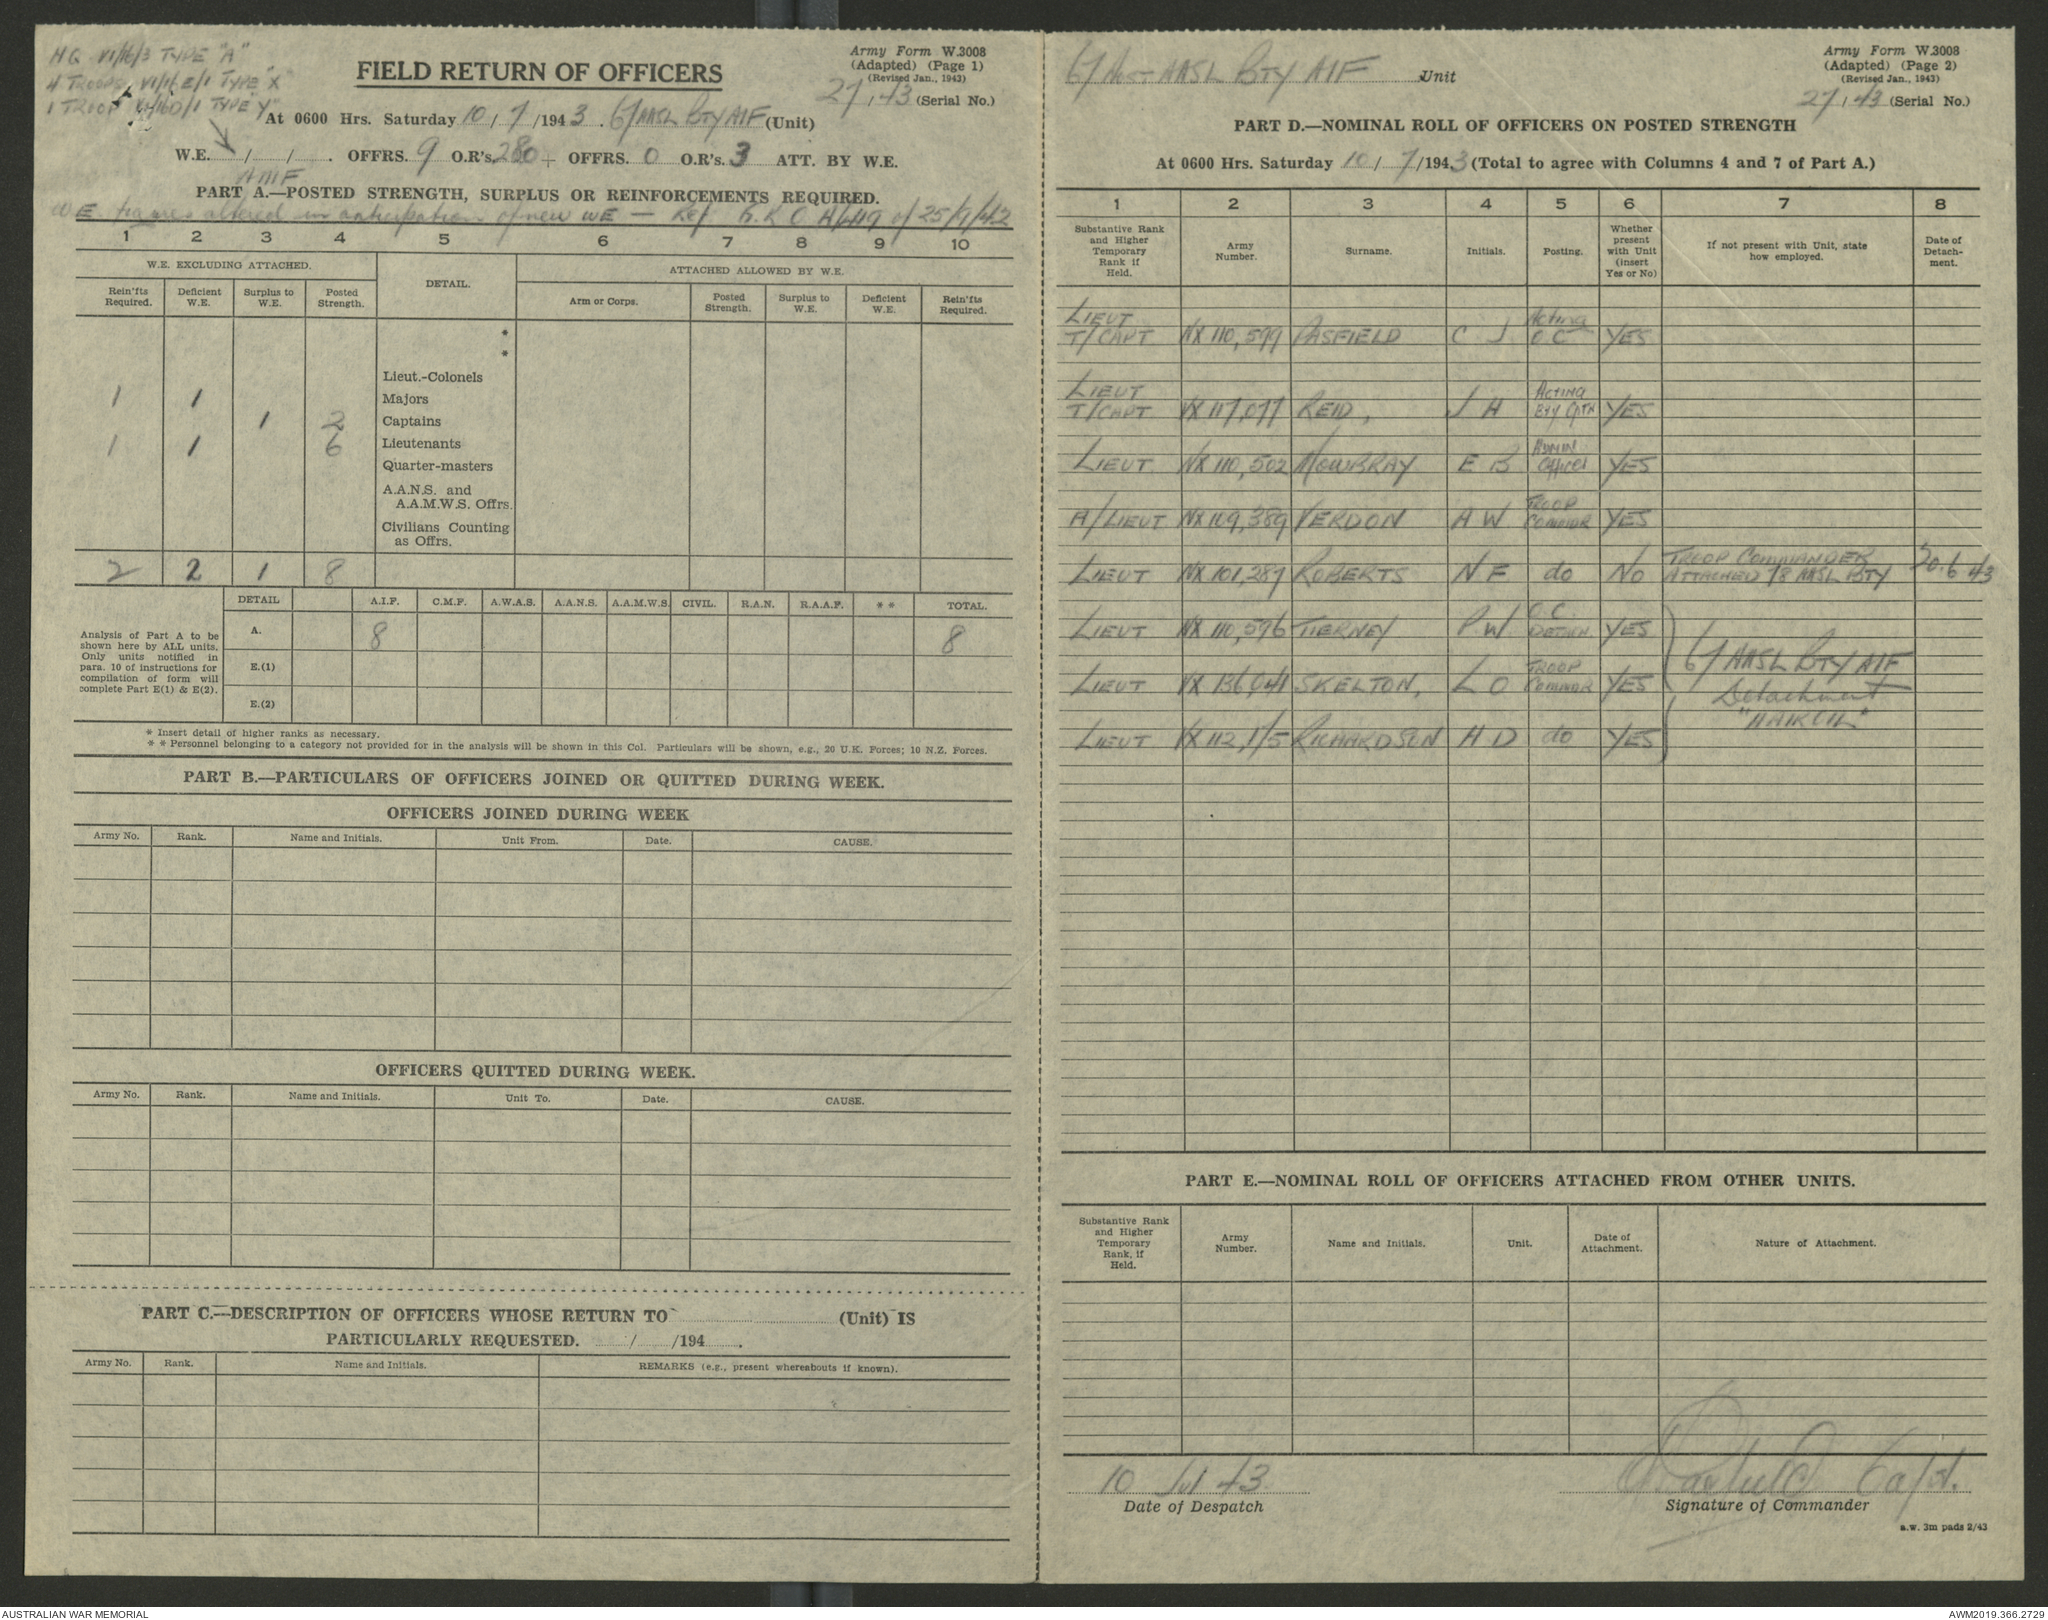 HQ VI/16/3 TYPE "A"
4 TROOPS VI/16E/1 TYPE "X"
1 TROOP VI/16D/1 TYPE "Y"
Army Form W.3008
(Adapted) (Page 1)
(Revised Jan., 1943)
FIELD RETURN OF OFFICERS
27/43 (Serial No.)
At 0600 Hrs. Saturday 10/7/1943. 67 AASL BTY AIF (Unit)
W.E. / / . OFFRS. 9 O.R's. 280 + OFFRS. 0 O.R's. 3 ATT. BY W.E.
AMF
PART A.—POSTED STRENGTH, SURPLUS OR REINFORCEMENTS REQUIRED.
WE figures altered in anticipation of new WE — Ref G.R.O. of 25/9/42
1 2 3 4 5 6 7 8 9 10
W.E. EXCLUDING ATTACHED. DETAIL. ATTACHED ALLOWED BY W.E.
Rein'fts Required. Deficient W.E. Surplus to W.E. Posted Strength. Arm or Corps. Posted Strength. Surplus to W.E. Deficient W.E. Rein'fts Required.
*
*
Lieut.-Colonels
1 1 Majors
1 2 Captains
1 1 6 Lieutenants
Quarter-masters
A.A.N.S. and
A.A.M.W.S. Offrs.
Civilians Counting
as Offrs.
2 2 1 8
DETAIL A.I.F. C.M.F. A.W.A.S. A.A.N.S. A.A.M.W.S. CIVIL. R.A.N. R.A.A.F. * * TOTAL.
Analysis of Part A to be
shown here by ALL units.
Only units notified in
para. 10 of instructions for
compilation of form will
complete Part E(1) & E(2).
A. 8 8
E.(1)
E.(2)
* Insert detail of higher ranks as necessary.
* * Personnel belonging to a category not provided for in the analysis will be shown in this Col. Particulars will be shown, e.g., 20 U.K. Forces; 10 N.Z. Forces.
PART B.—PARTICULARS OF OFFICERS JOINED OR QUITTED DURING WEEK.
OFFICERS JOINED DURING WEEK
Army No. Rank. Name and Initials. Unit From. Date. CAUSE.
OFFICERS QUITTED DURING WEEK.
Army No. Rank. Name and Initials. Unit To. Date. CAUSE.
PART C.—DESCRIPTION OF OFFICERS WHOSE RETURN TO (Unit) IS
PARTICULARLY REQUESTED. / /194 .
Army No. Rank. Name and Initials. REMARKS (e.g., present whereabouts if known).
67 AASL BTY AIF Unit
Army Form W.3008
(Adapted) (Page 2)
(Revised Jan., 1943)
27/43 (Serial No.)
PART D.—NOMINAL ROLL OF OFFICERS ON POSTED STRENGTH
At 0600 Hrs. Saturday 10/7/1943 (Total to agree with Columns 4 and 7 of Part A.)
1 2 3 4 5 6 7 8
Substantive Rank and Higher Temporary Rank if Held. Army Number. Surname. Initials. Posting. Whether present with Unit (insert Yes or No) If not present with Unit, state how employed. Date of Detachment.
LIEUT T/CAPT NX 110,599 PASFIELD C J Acting O C YES
LIEUT T/CAPT VX 117,077 REID, J H ACTING BTY CPTN YES
LIEUT NX 110,502 MOWBRAY E B ADMIN Officer YES
A/LIEUT NX 109,389 VERDON A W TROOP COMMDR YES
LIEUT NX 101,287 ROBERTS N F do NO TROOP COMMANDER ATTACHED 78 AASL BTY 30.6.43
LIEUT NX 110,596 TIERNEY P W O C DETCHN. YES
LIEUT VX 136,041 SKELTON, L O TROOP COMMDR YES
LIEUT VX 112,175 RICHARDSON H D do YES
67 AASL BTY AIF
Detachment
"HAIROIL"
PART E.—NOMINAL ROLL OF OFFICERS ATTACHED FROM OTHER UNITS.
Substantive Rank and Higher Temporary Rank, if Held. Army Number. Name and Initials. Unit. Date of Attachment. Nature of Attachment.
10 Jul 43
Date of Despatch
Pasfield Capt.
Signature of Commander
a.w. 3m pads 2/43
AUSTRALIAN WAR MEMORIAL
AWM2019.366.2729